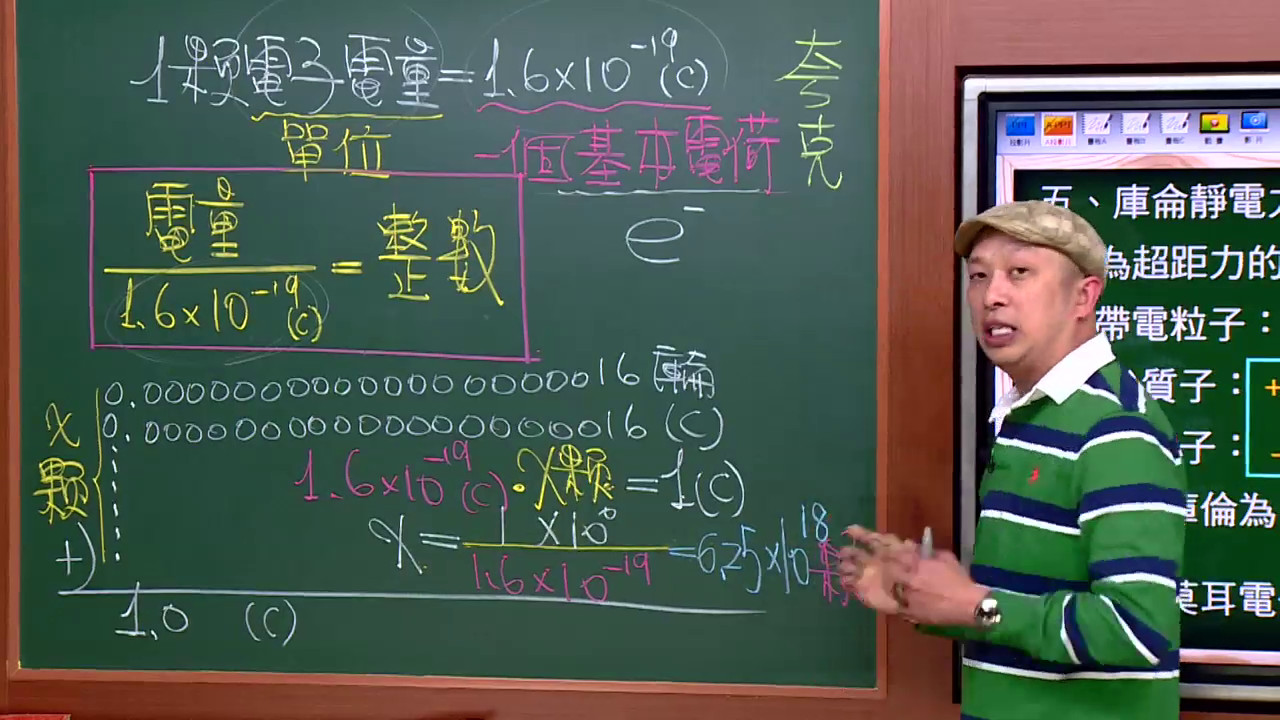 1顆電子電量=1.6×10⁻¹⁹(C)
單位
一個基本電荷
夸克
e⁻
電量/1.6×10⁻¹⁹(C) = 整數
0.00000000000000000016庫倫
0.00000000000000000016(C)
x顆
1.6×10⁻¹⁹(C)·x顆=1(C)
x=1×10⁰/1.6×10⁻¹⁹=6.25×10¹⁸
+)
1.0 (C)
五、庫侖靜電力
為超距力的
帶電粒子:
質子:
子:
庫倫為
莫耳電